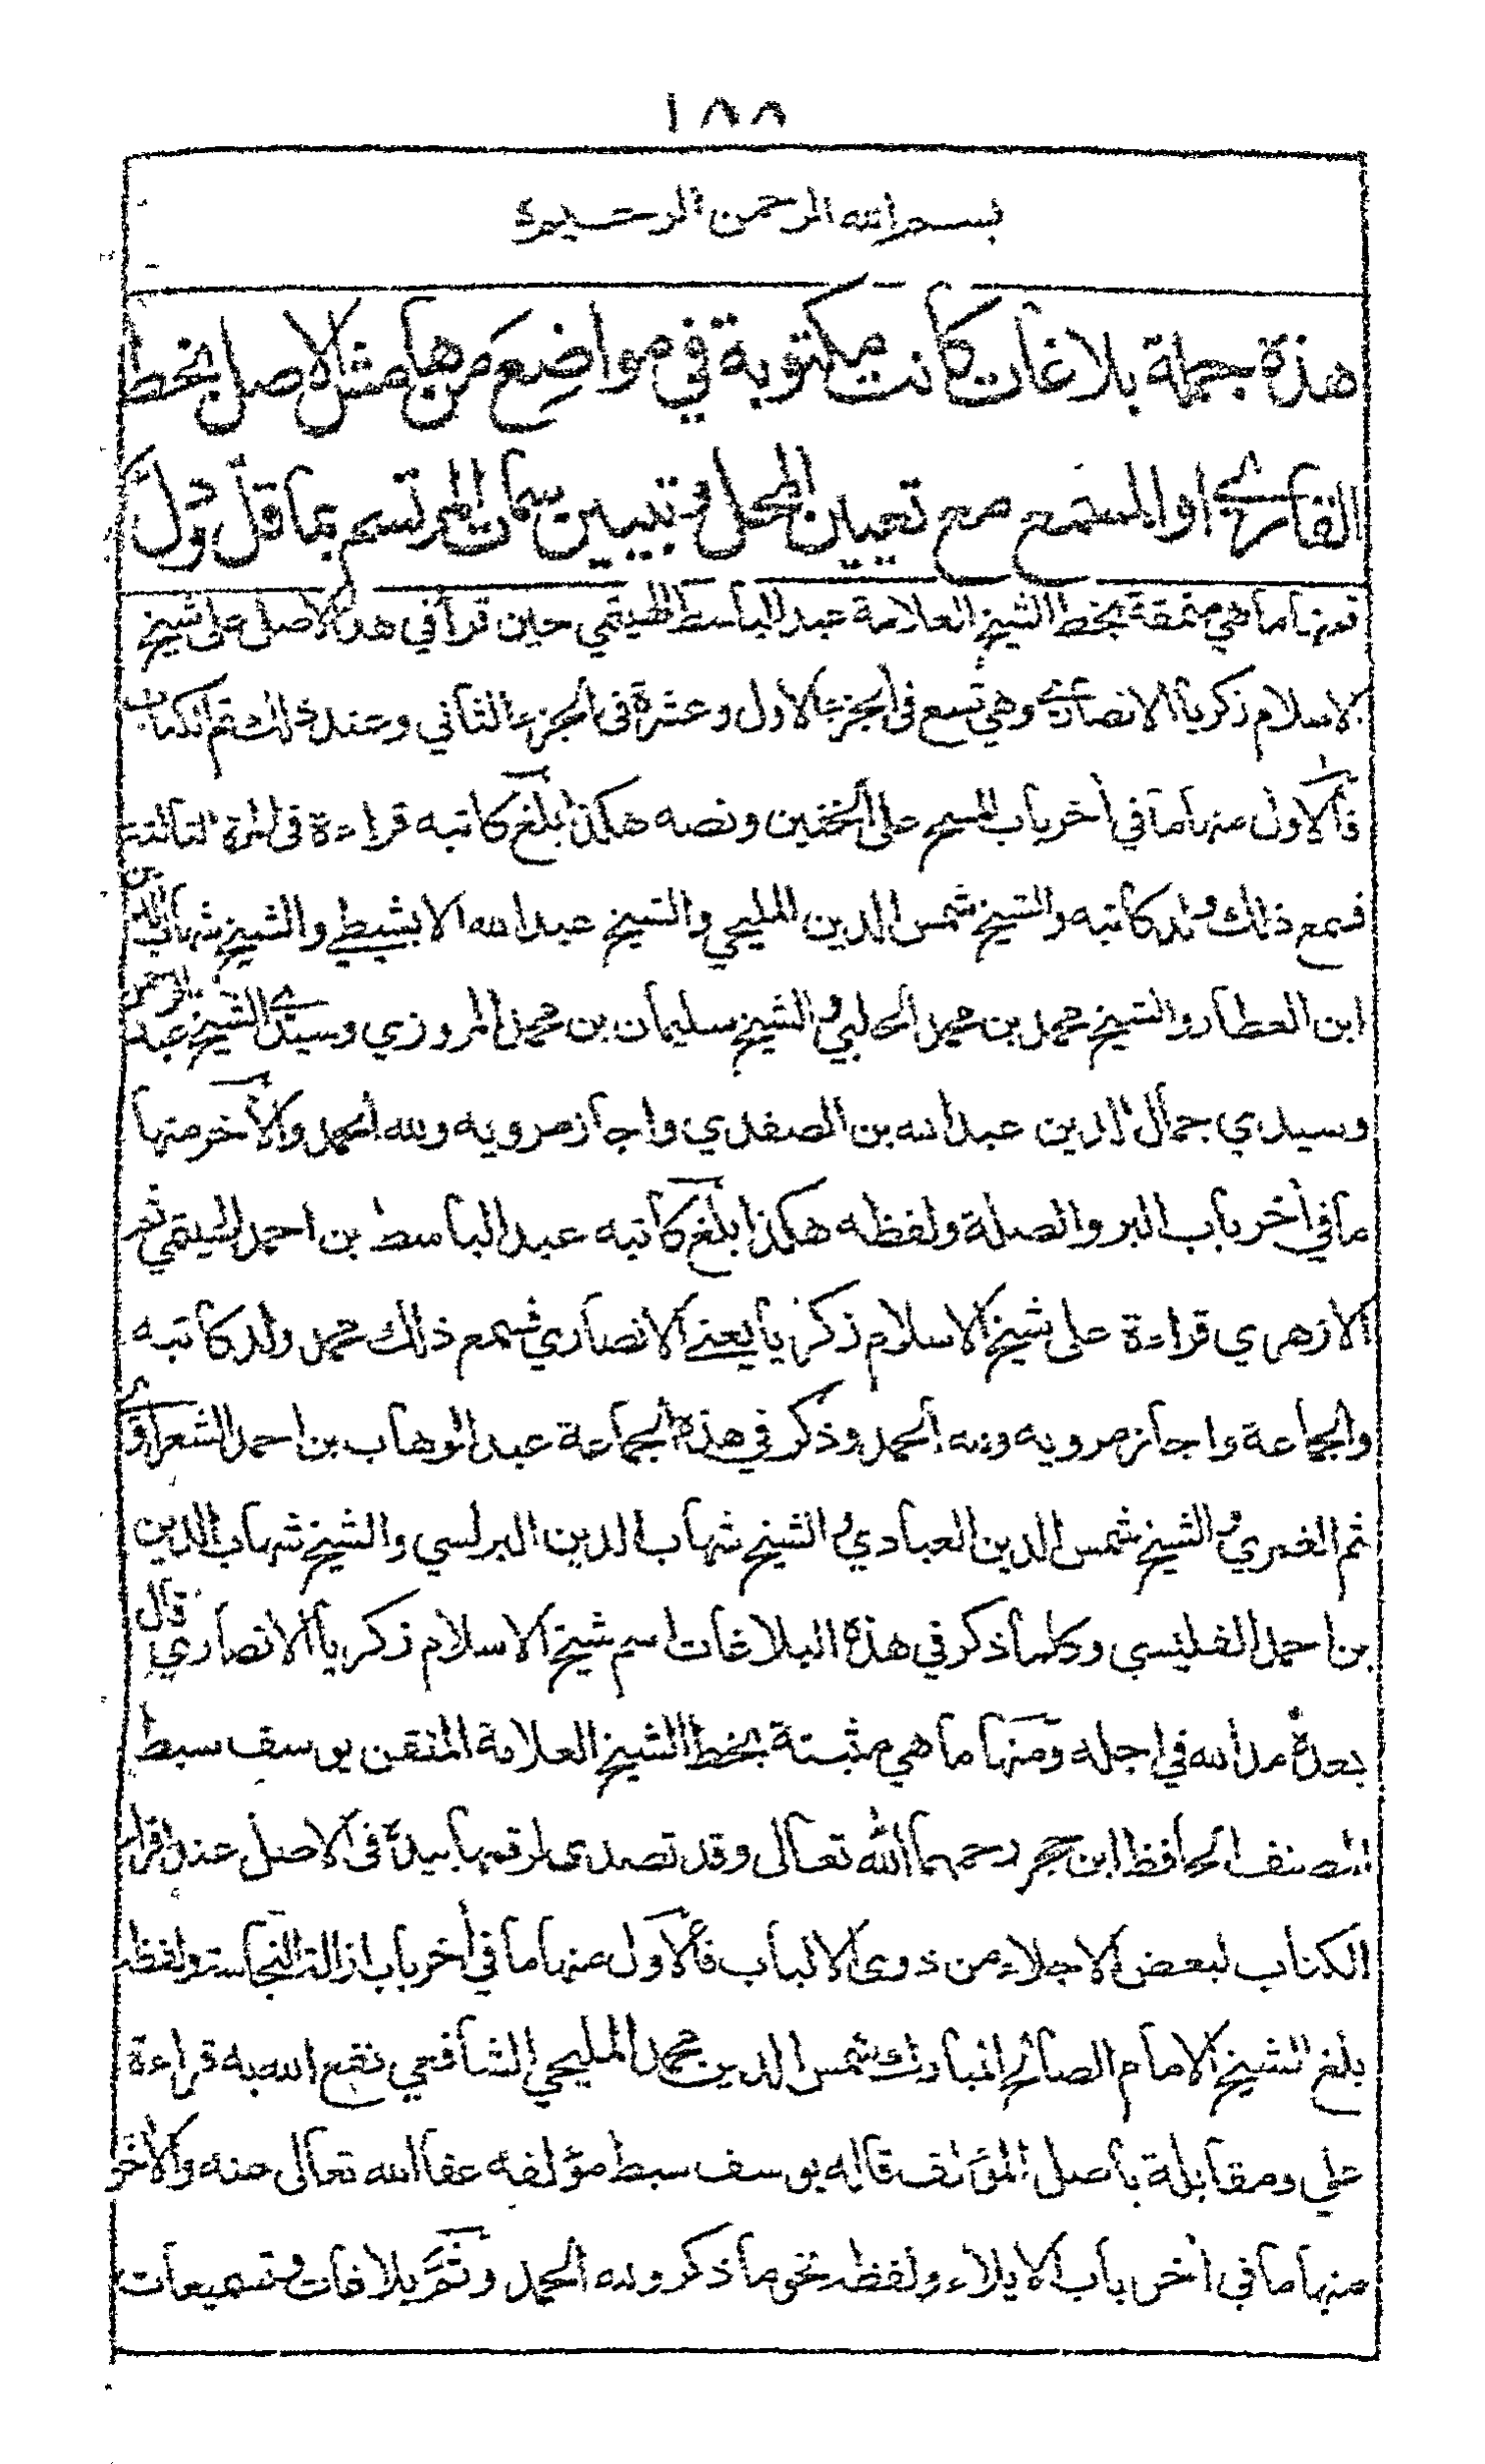 ١٨٨
بسم الله الرحمن الرحيم
هذه جملة بلاغات كانت مكتوبة في مواضع من هامش الاصل بخط
القارئ او المسمع مع تعيين المحل وتبيين سمات المرتسم بما قل ودل
فمنها ما هي منمقة بخط الشيخ العلامة عبد الباسط الهيتمي حين قرأ في هذا الاصل على شيخ
الاسلام زكريا الانصاري وهي تسع في الجزء الاول وعشرة في الجزء الثاني وعند ذلك تم الكتاب
فالاول منها ما في أخر باب المسح على الخفين ونصه هكذا بلغ كاتبه قراءة في المرة الثالثة
فسمع ذلك ولد كاتبه والشيخ شمس الدين المليحي والشيخ عبد الله الابشيطي والشيخ شهاب الدين
ابن العطار والشيخ محمد بن محمد الحلبي والشيخ سليمان بن محمد المروزي وسيدي الشيخ عبد الرحمن
وسيدي جمال الدين عبد الله بن الصفدي واجاز مرويه ولله الحمد والآخر منها
ما في أخر باب البر والصلة ولفظه هكذا بلغ كاتبه عبد الباسط بن احمد الهيتمي ثم
الازهري قراءة على شيخ الاسلام زكريا يعني الانصاري فسمع ذلك محمد ولد كاتبه
والجماعة واجاز مرويه ولله الحمد وذكر في هذه الجماعة عبد الوهاب بن احمد الشعراوي
ثم الغمري والشيخ شمس الدين العبادي والشيخ شهاب الدين البرلسي والشيخ شهاب الدين
بن احمد وكلما ذكر في هذه البلاغات اسم شيخ الاسلام زكريا الانصاري قال
بعده مد الله في اجله ومنها ما هي مثبتة بخط الشيخ العلامة المتقن يوسف سبط
المصنف الحافظ ابن حجر رحمهما الله تعالى وقد تصدى لرقمها بيده في الاصل عند اقراء
الكتاب لبعض الاجلاء من ذوي الالباب فالاول منها ما في أخر باب ازالة النجاسة ولفظه
بلغ الشيخ الامام الصالح المبارك شمس الدين محمد المليحي الشافعي نفع الله به قراءة
علي ومقابلة باصل المؤلف قاله يوسف سبط مؤلفه عفا الله تعالى عنه والأخر
منها ما في أخر باب الايلاء ولفظه نحو ما ذكر ولله الحمد وثم بلاغات وتسميعات